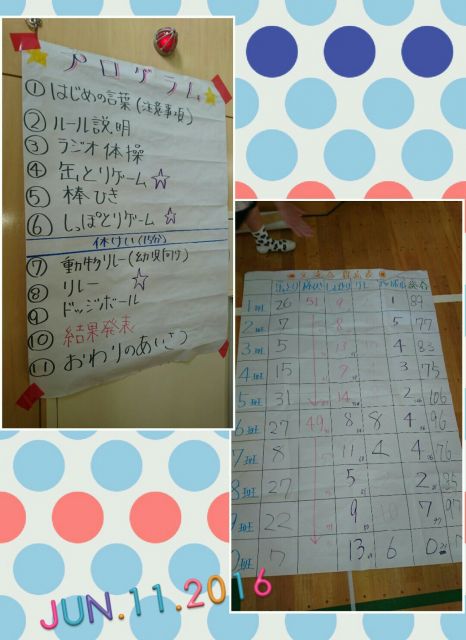 プログラム
① はじめの言葉(注意事項)
② ルール説明
③ ラジオ体操
④ 缶とりゲーム☆
⑤ 棒ひき
⑥ しっぽとりゲーム☆
休けい(15分)
⑦ 動物リレー(幼児向け)
⑧ リレー ☆
⑨ ドッジボール
⑩ 結果発表
⑪ おわりのあいさつ
1班 26 51 9 1
2班 7 8 5 77
3班 5 13 4 83
4班 15 7 3 75
5班 31 14 2 106
6班 27 49 8 8 4 96
7班 8 11 4 4 76
8班 27 5 2
班 22 9 7
班 7 13 6 0
JUN.11.2016